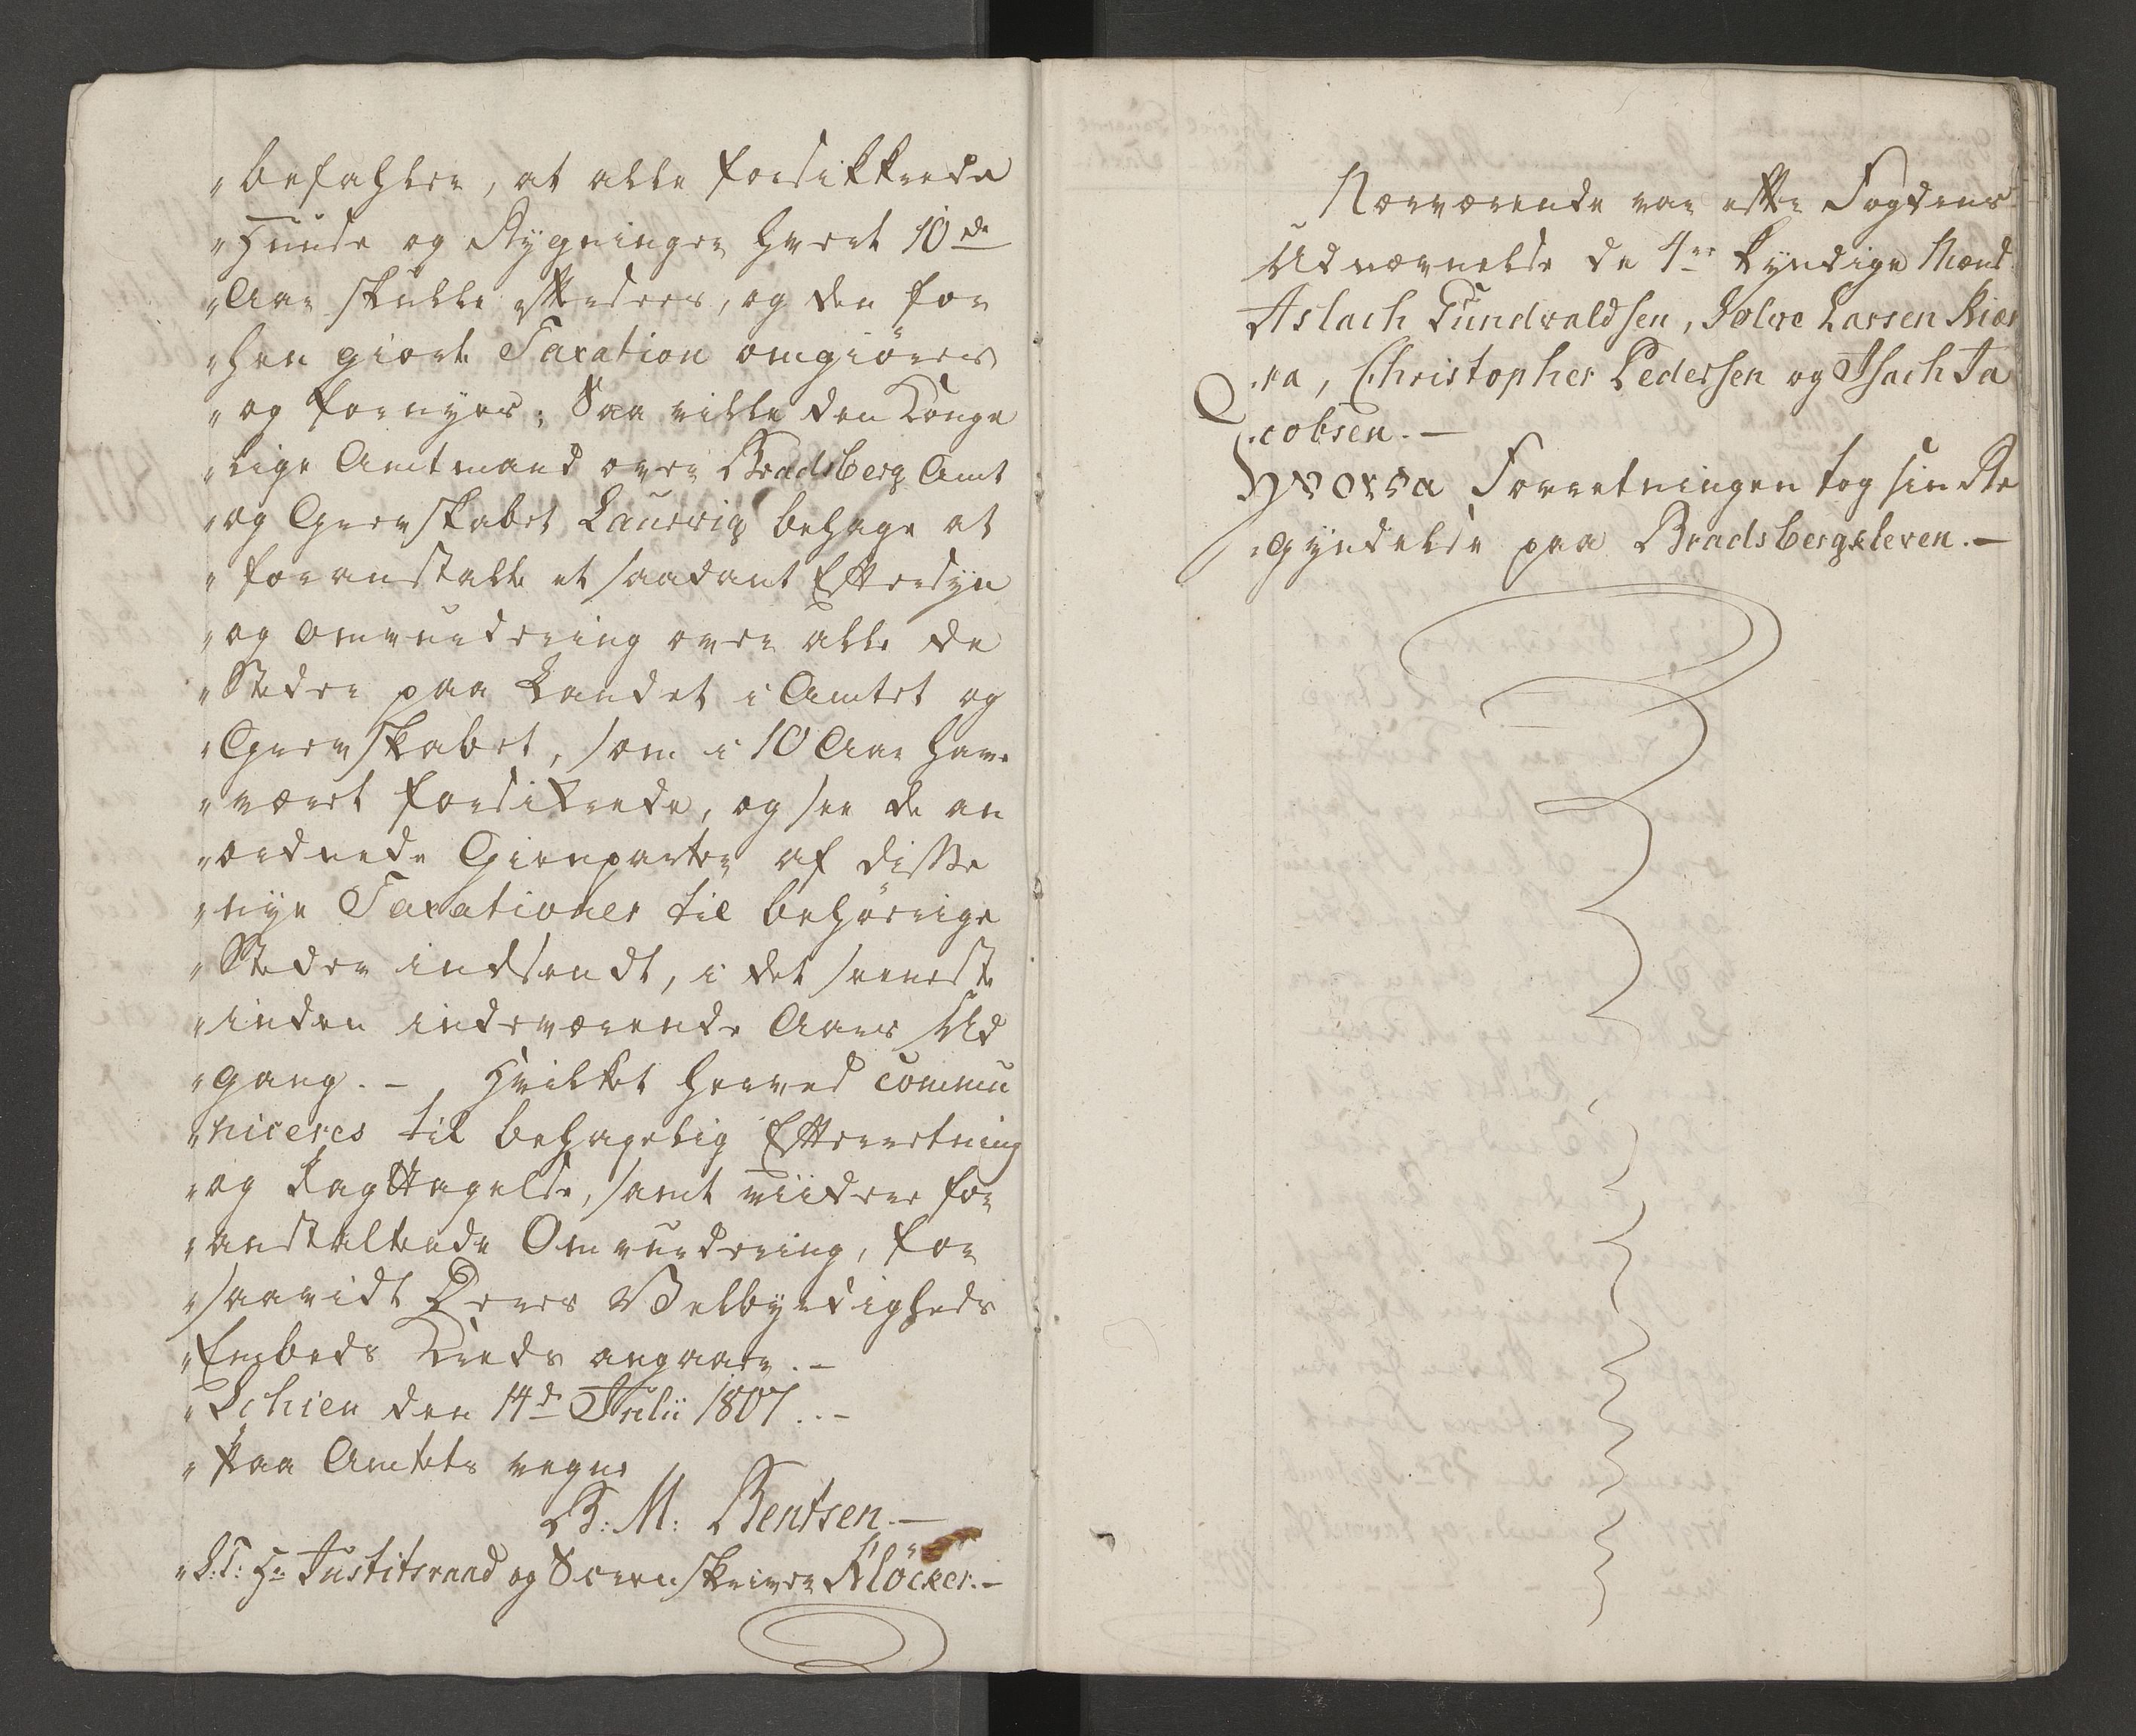 „befahler, at alle forsikkrede
„Huuse og Bygninger hvert 10de
„Aar skulle efterseees, og den for
„hen giorte Taxation omgiøres
„og fornyes; Saa ville den Konge
„lige Amtmand over Bradsberg Amt
„og Grevskabet Laurvig behage at
„foranstalte et saadant Eftersyn
„og Omvurdering over alle de
„Steder paa Landet i Amtet og
„Grevskabet, som i 10 Aar have
„været forsikrede, og see de an
„ordnede Gienparter af disse
„nye Taxationer til behørige
„Steder indsendt, i det seeneste
„inden indeværende Aars Ud
„gang. – , Hvilket herved commu
„niceres til behagelig Efterretning
„og Iagttagelse, samt viidere for
„anstaltende Omvurdering, for
„saavidt Deres Velbyrdigheds
„Embeds Kreds angaaer. –
„Schien den 14de Julii 1807. . –
„Paa Amtets vegne
B: M: Bentsen. –
„S: T: Hr Justitsraad og Sorenskriver Klöcker. –
Nærværende var efter Fogdens
Udnævnelse de 4re kyndige Mænd
Aslach Gundvaldsen, Solve Larsen Kiør
ra, Christopher Pedersen og Isach Ja
cobsen. –
Hvorpaa Forretningen tog sin Be
gyndelse paa Bradsbergkleven. –